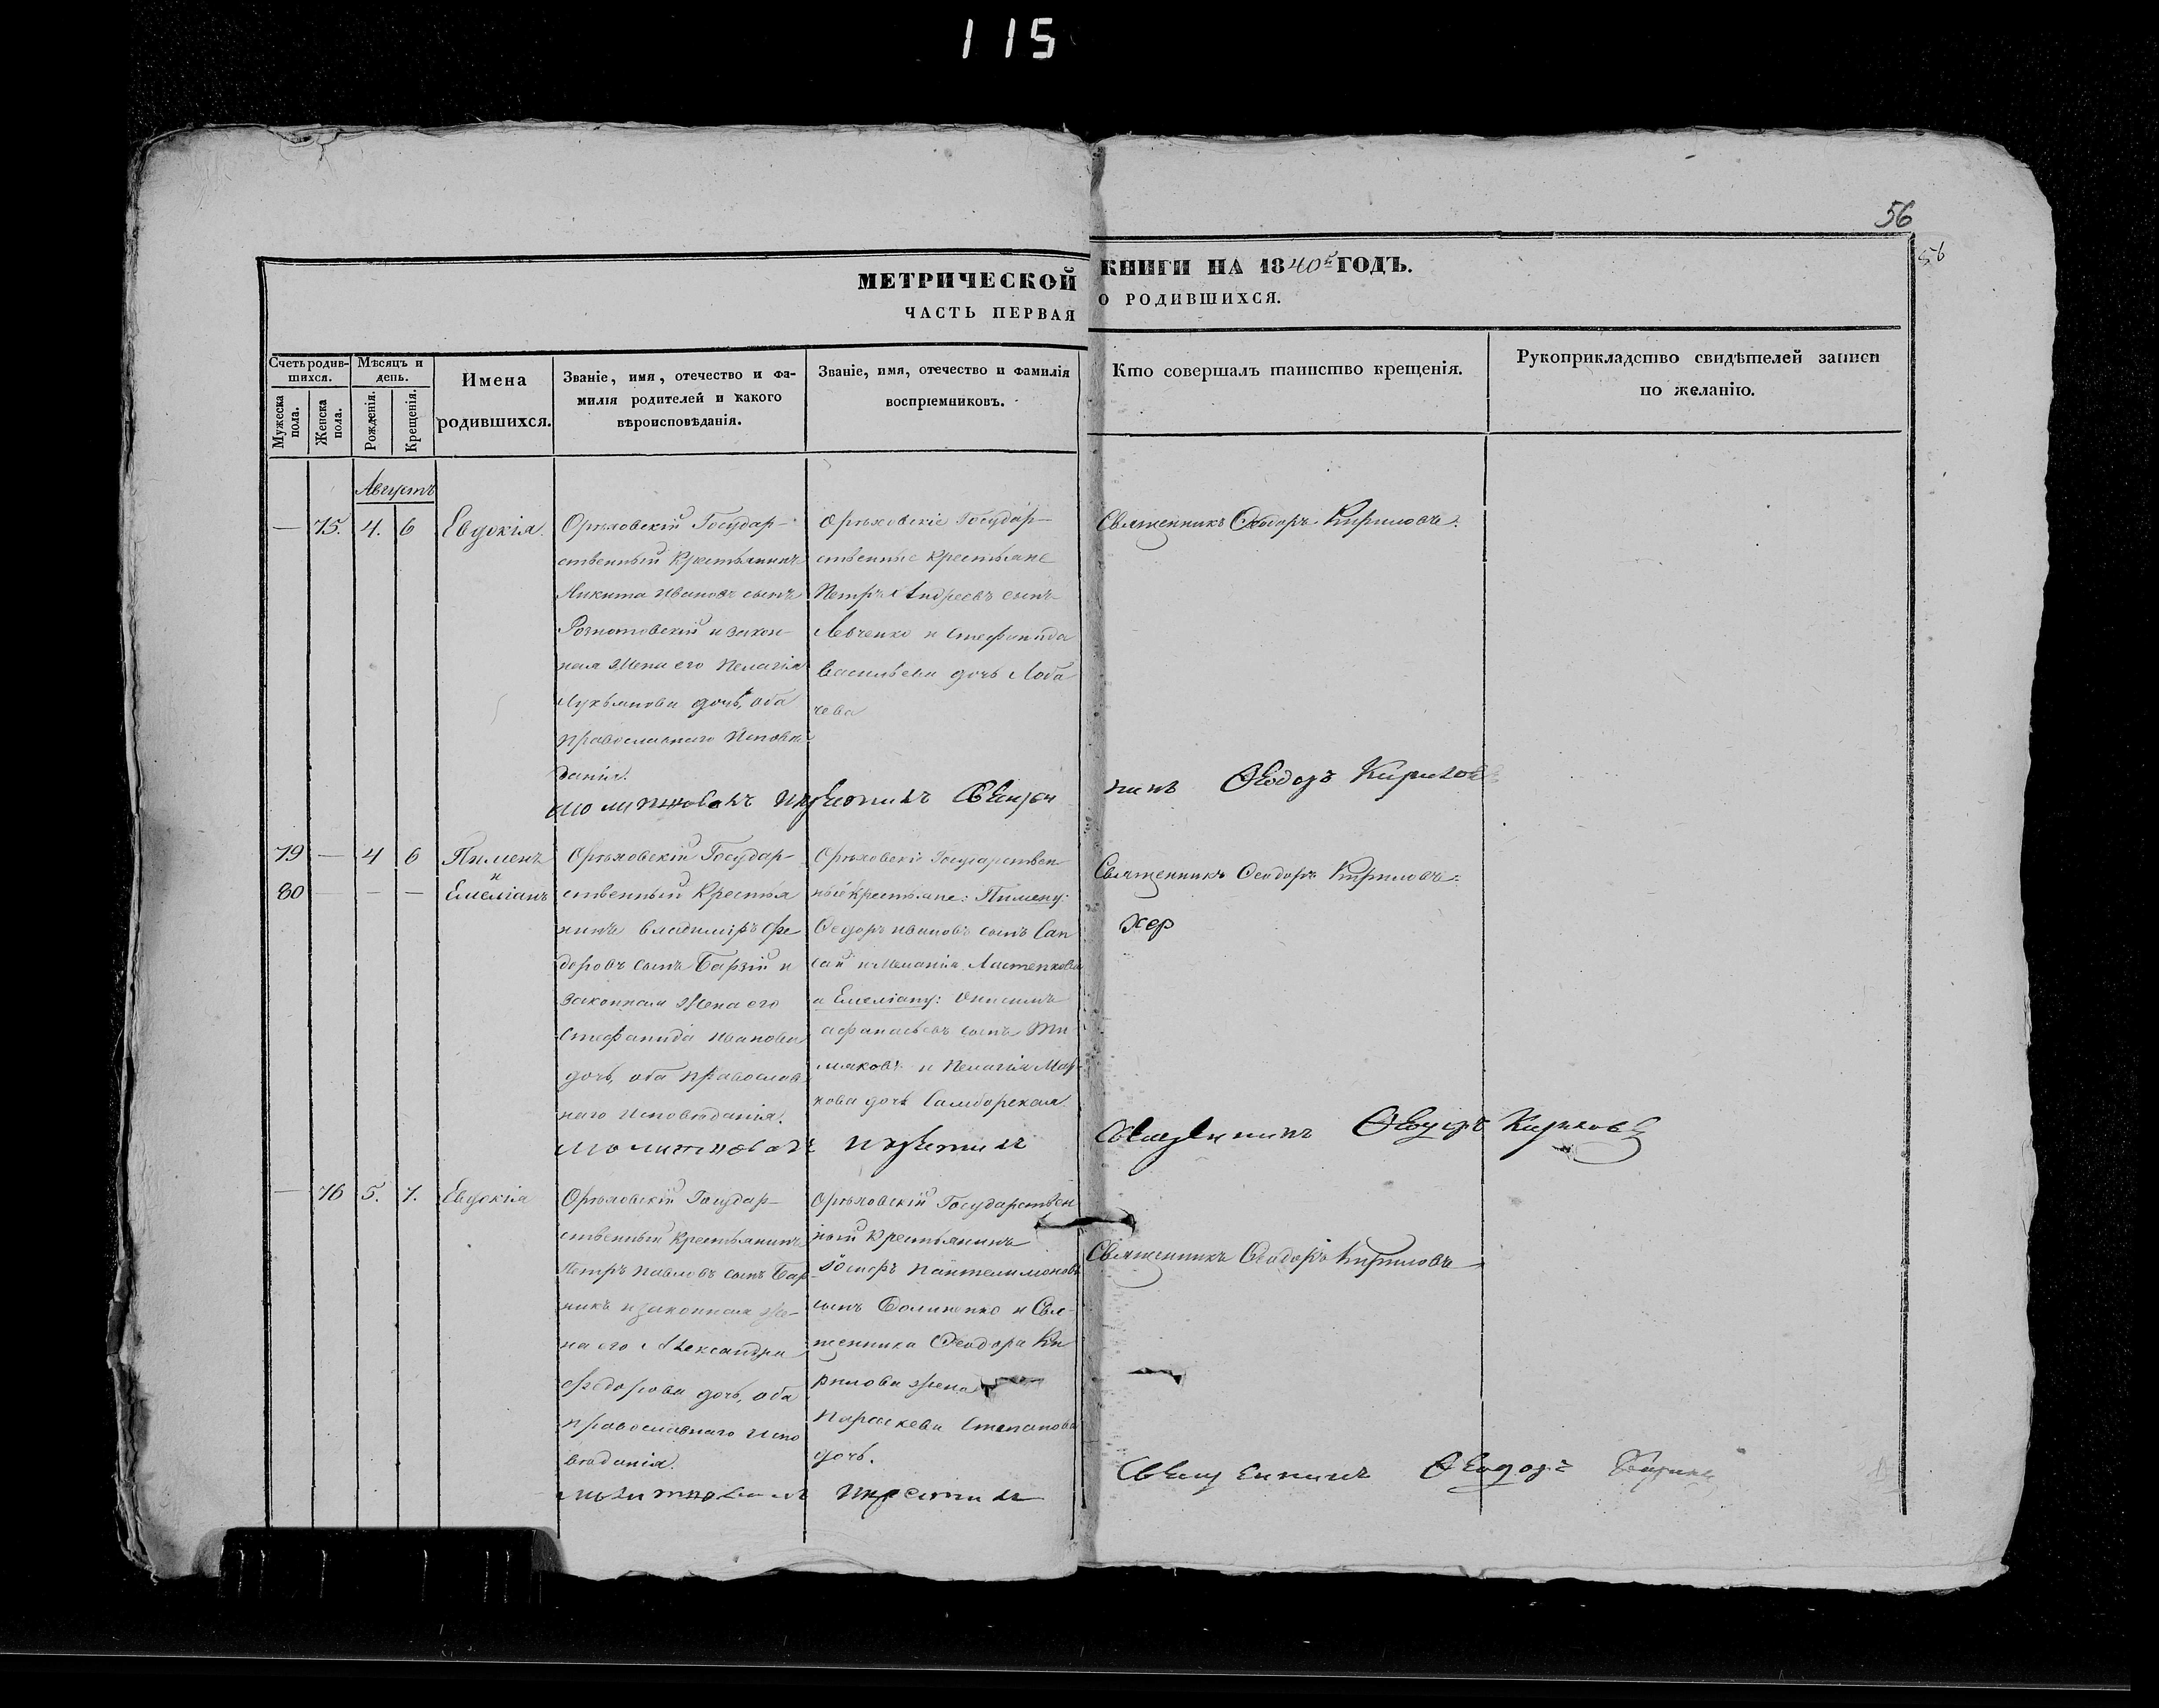 115
56
56
МЕТРИЧЕСКОЙ КНИГИ НА 1840й ГОДЪ.
ЧАСТЬ ПЕРВАЯ О РОДИВШИХСЯ.
Счетъ родившихся.
Мужеска пола.
Женска пола.
Мѣсяцъ и день.
Рожденія.
Крещенія.
Имена родившихся.
Званіе, имя, отечество и фамилія родителей и какого вѣроисповѣданія.
Званіе, имя, отечество и фамилія воспріемниковъ.
Кто совершалъ таинство крещенія.
Рукоприкладство свидѣтелей записи по желанію.
Августъ
— 75. 4. 6 Евдокія.
Орѣховскій Государ-
ственный Крестьянинъ
Никита Ивановъ сынъ
и закон-
ная жена его Пелагія
Лукьянова дочь, оба
православнаго Исповѣ-
данія.
Орѣховскіе Государ-
ственные крестьяне
Петръ Андреевъ сынъ
Левченко и Стефанида
Васильева дочь Лоба
чева
Священникъ Ѳеодоръ Кириловъ.
молитвовалъ икрестилъ Священ
никъ Ѳеодоръ Кириловъ
79 — 4 6 Пименъ
и
80 — — — Емеліанъ
Орѣховскій Государ-
ственный Крестья
нинъ Владимиръ Фе
доровъ сынъ Барзій и
законная жена его
Стефанида Иванова
дочь, оба православ
наго Исповѣданія.
Орѣховскіе Государствен
ные крестьяне: Пимену:
Ѳедоръ Ивановъ сынъ Сап
сай и Меланія Ластенкова
а Емеліану: Онисимъ
Афанасьевъ сынъ
и Пелагія Мар
кова дочь Самборская.
Священникъ Ѳеодоръ Кириловъ:
хер
молитвовалъ икрестилъ
Священникъ Ѳеодоръ Кириловъ
— 76 5. 7. Евдокія
Орѣховскій Государ-
ственный Крестьянинъ
Петръ Павловъ сынъ Бар
никъ и законная же-
на его Александра
Федорова дочь, оба
православнаго Испо
вѣданія.
Орѣховскій Государствен
ный Крестьянинъ
Пантелимоновъ
сынъ и Свя-
щенника Ѳеодора Ки
рилова жена
Параскева Степанова
дочь.
Священникъ Ѳеодоръ Кириловъ
молитвовалъ икрестилъ
Священникъ Ѳеодоръ